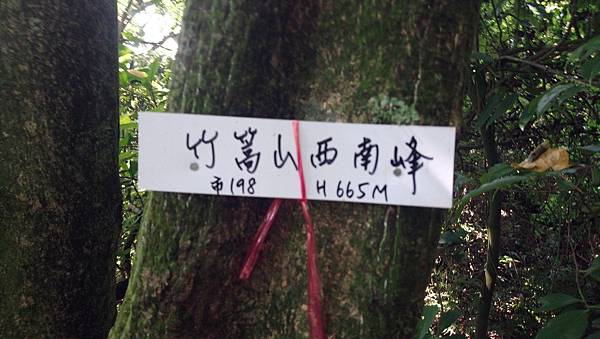 竹篙山西南峰
市198 H665M